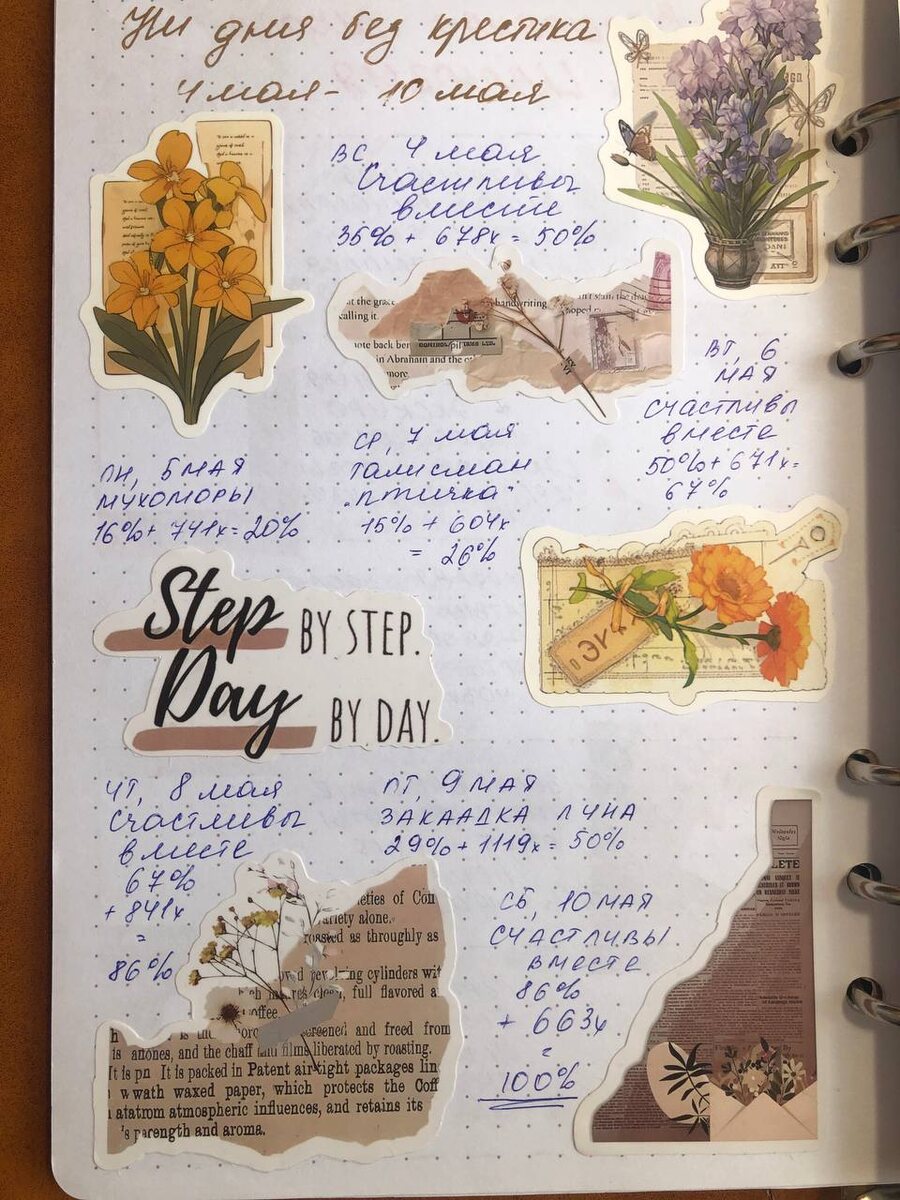 Ни дня без крестика
4 мая - 10 мая
ВС 4 мая
Счастливы
вместе
35% + 678х = 50%
at the grace
handwriting
calling it.
note back ber
in Abraham and the
more.
ВТ, 6
МАЯ
Счастливы
вместе
50% + 671х =
67%
ПН, 5 МАЯ
МУХОМОРЫ
16% + 741х = 20%
СР, 7 мая
Талисман
"птичка"
15% + 604х
= 26%
Step BY STEP.
Day BY DAY.
ЧТ, 8 мая
Счастливы
вместе
67%
+ 841х
=
86%
ПТ, 9 МАЯ
ЗАКЛАДКА ЛУНА
29% + 1119х = 50%
СБ, 10 МАЯ
СЧАСТЛИВЫ
вместе
86%
+ 663х
=
100%
LETE
ieties of Con
ariety alone.
roasted as throughly as
revolving cylinders wit
full flavored a
offee.
screened and freed from
and the chaff and films liberated by roasting.
It is packed in Patent air tight packages lin
with waxed paper, which protects the Coff
atmospheric influences, and retains its
and aroma.